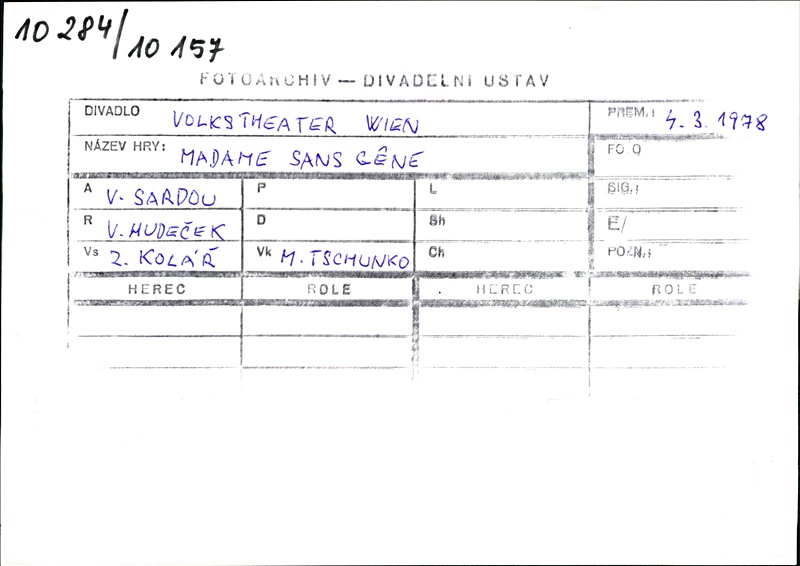 10 284/10 157
FOTOARCHIV — DIVADELNI USTAV
DIVADLO VOLKSTHEATER WIEN PREM.: 4. 3. 1978
NÁZEV HRY: MADAME SANS GÊNE FO O
A V. SARDOU P L SIG.:
R V. HUDEČEK D Sh E/
Vs Z. KOLÁŘ Vk M. TSCHUNKO Ch POZN.:
HEREC ROLE HEREC ROLE